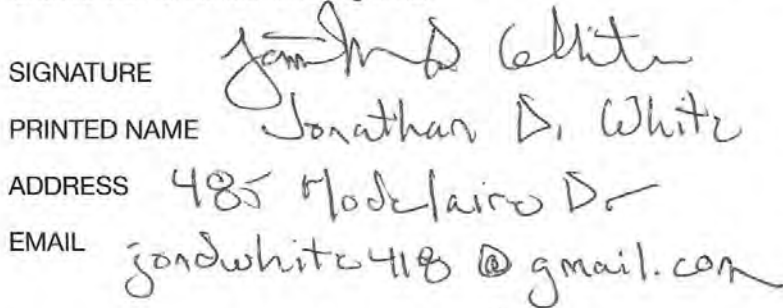 SIGNATURE Jonathan D White
PRINTED NAME Jonathan D. White
ADDRESS 485 Modelaire Dr
EMAIL jondwhite418@gmail.com